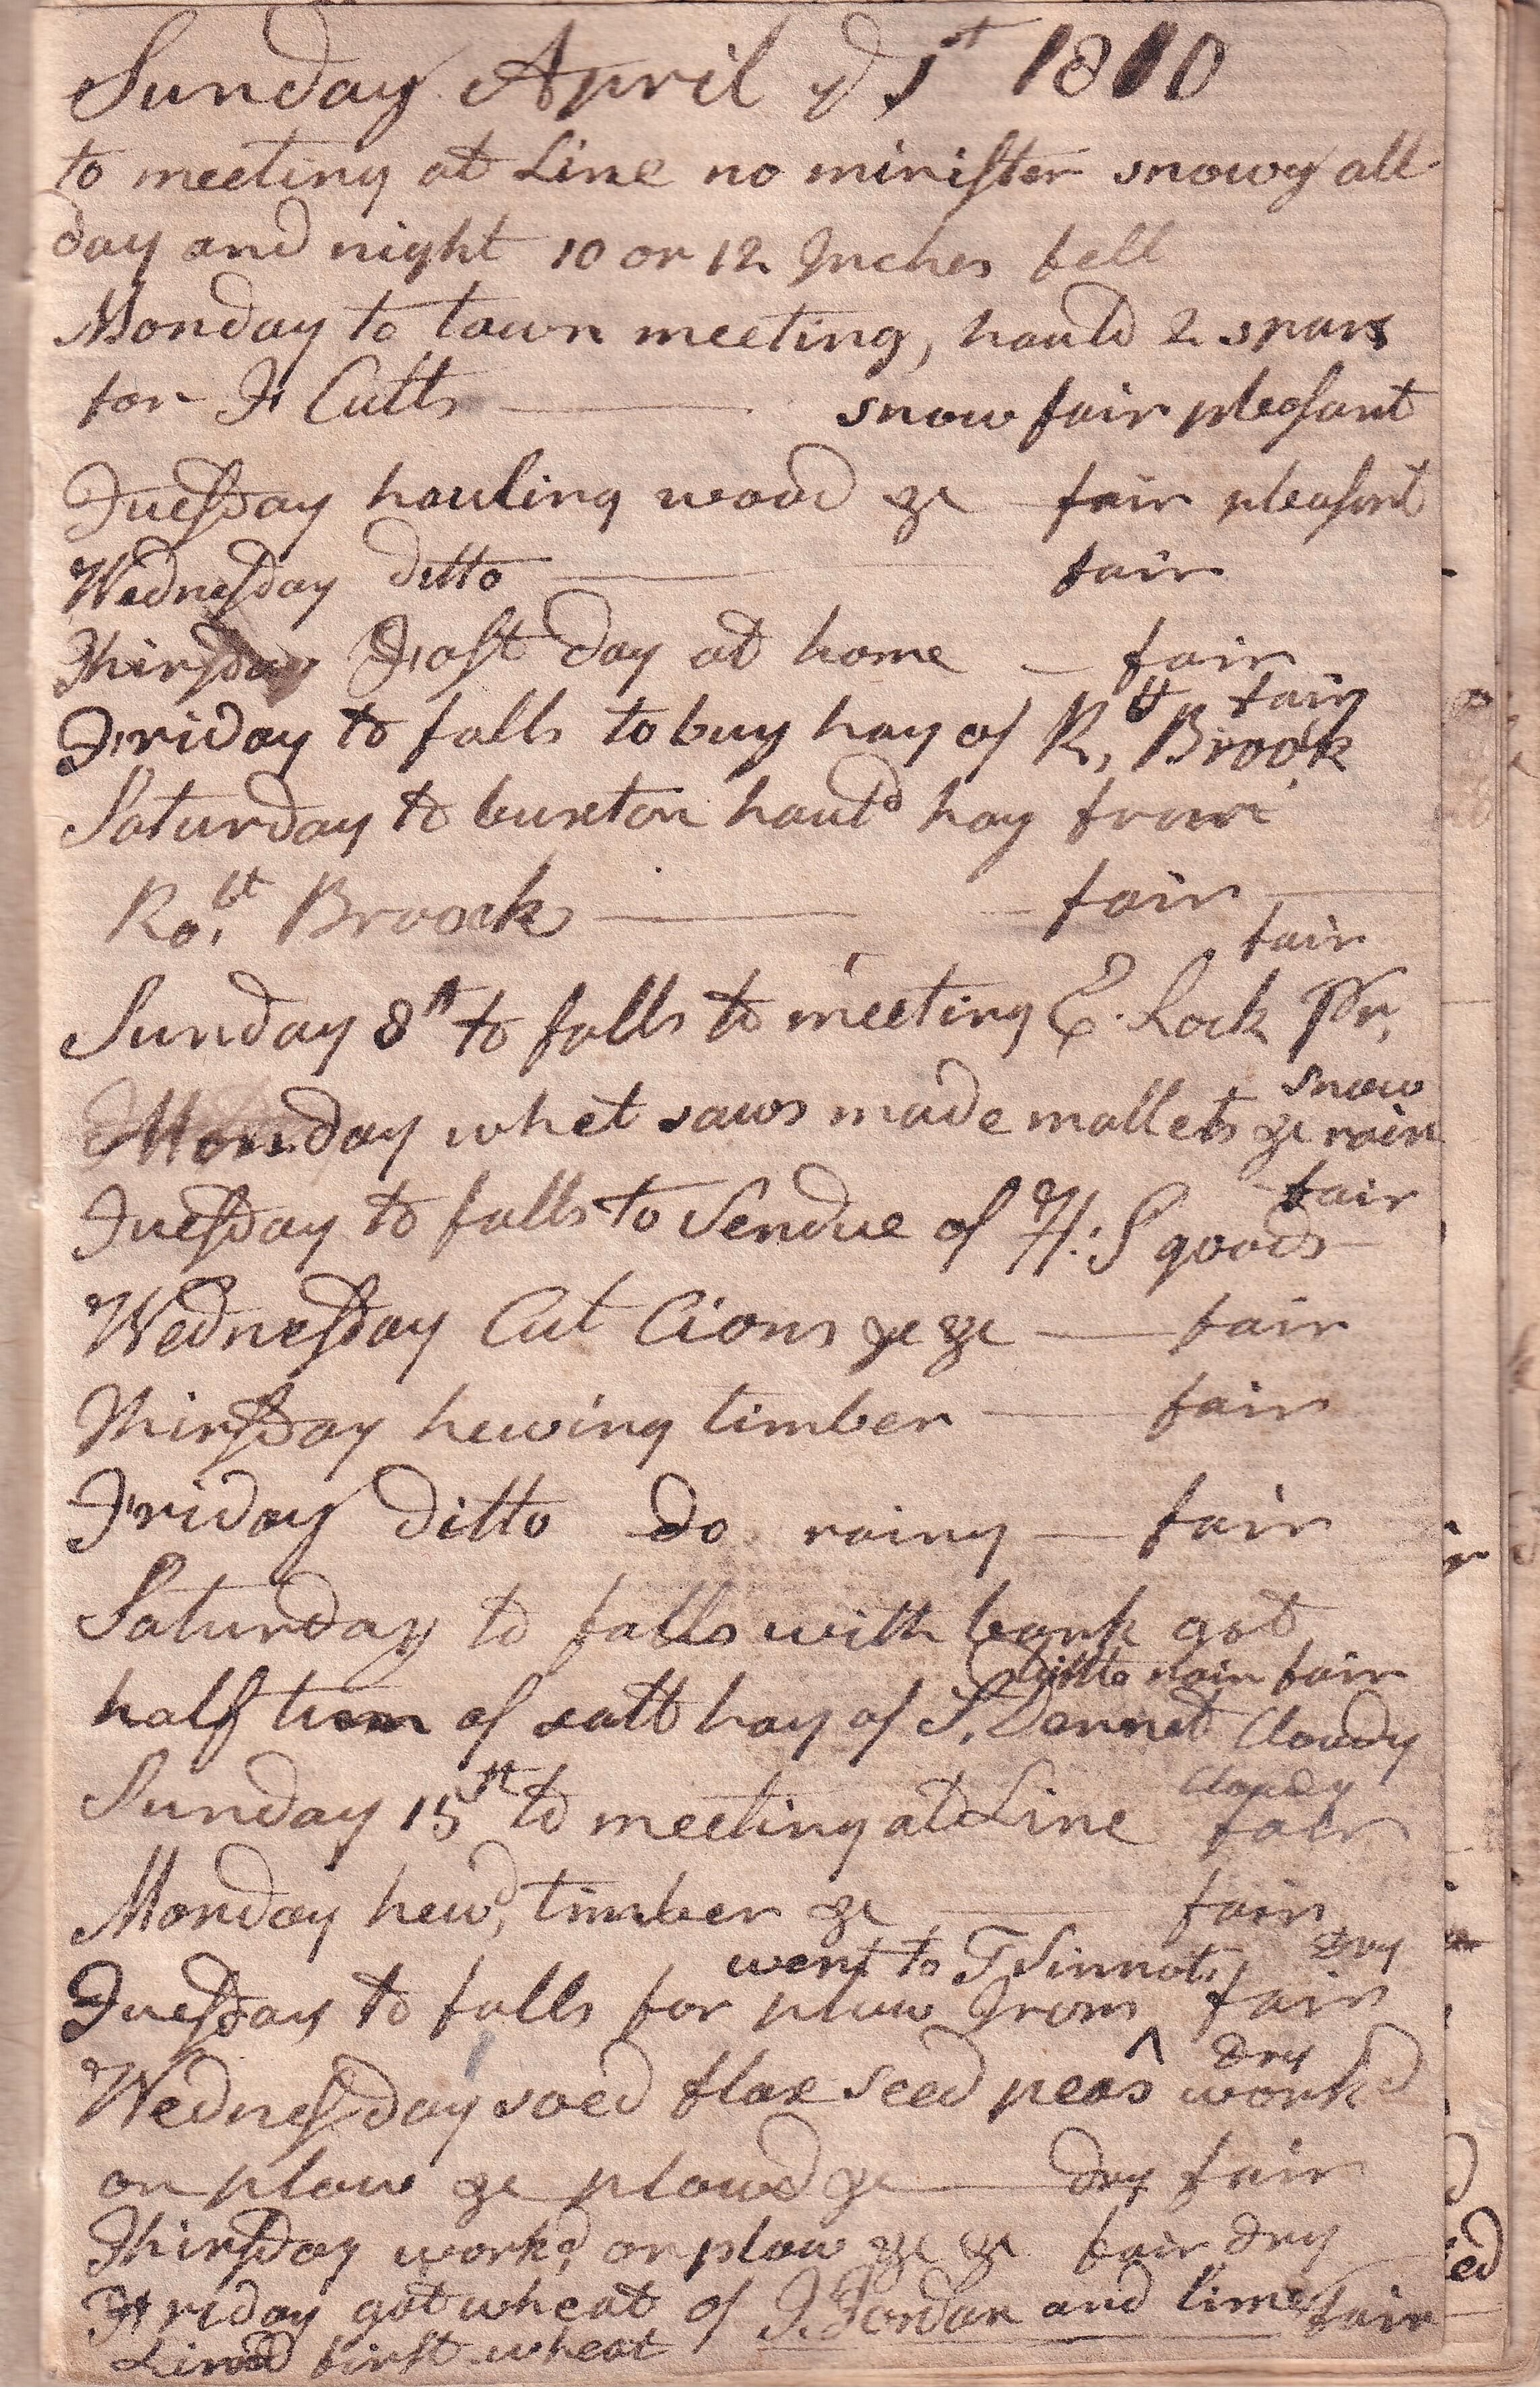 Sunday April ye 1st 1810
to meeting at Line no minister snowy all
day and night 10 or 12 Inches fell
Monday to town meeting, hauld 2 spars
for F Cutts — snow fair pleasant
Tuesday hauling wood &c fair pleasant
Wednesday ditto — fair
Thirsday Fast day at home — fair
fair
Friday to falls to buy hay of R,bt Brook
Saturday to buxton hauld hay from
Ro,bt Broock — fair —
fair
Sunday 8th to falls to meeting E. Lock Pr,
snow
Monday whet saws made mallets &c rain
fair
Tuesday to falls to Vendue of H:S goods
Wednesday Cut Cions &c &c — fair
Thirsday hewing timber — fair
Friday ditto do rainy — fair
Saturday to falls with bark got
little rain fair
half tunn of salt hay of S, Dennet Cloudy
Cloudy
Sunday 15th to meeting at Line fair
Monday hewd, timber &c — fair
went to T Sinnots, dry
Tuesday to falls for plow Irons ^ fair
dry
Wednesday soed flax seed peas workd
on plow &c plowd &c — dry fair
Thirsday workd, on plow &c &c fair dry
Friday got wheat of J. Jordan and lime fair
Limd first wheat